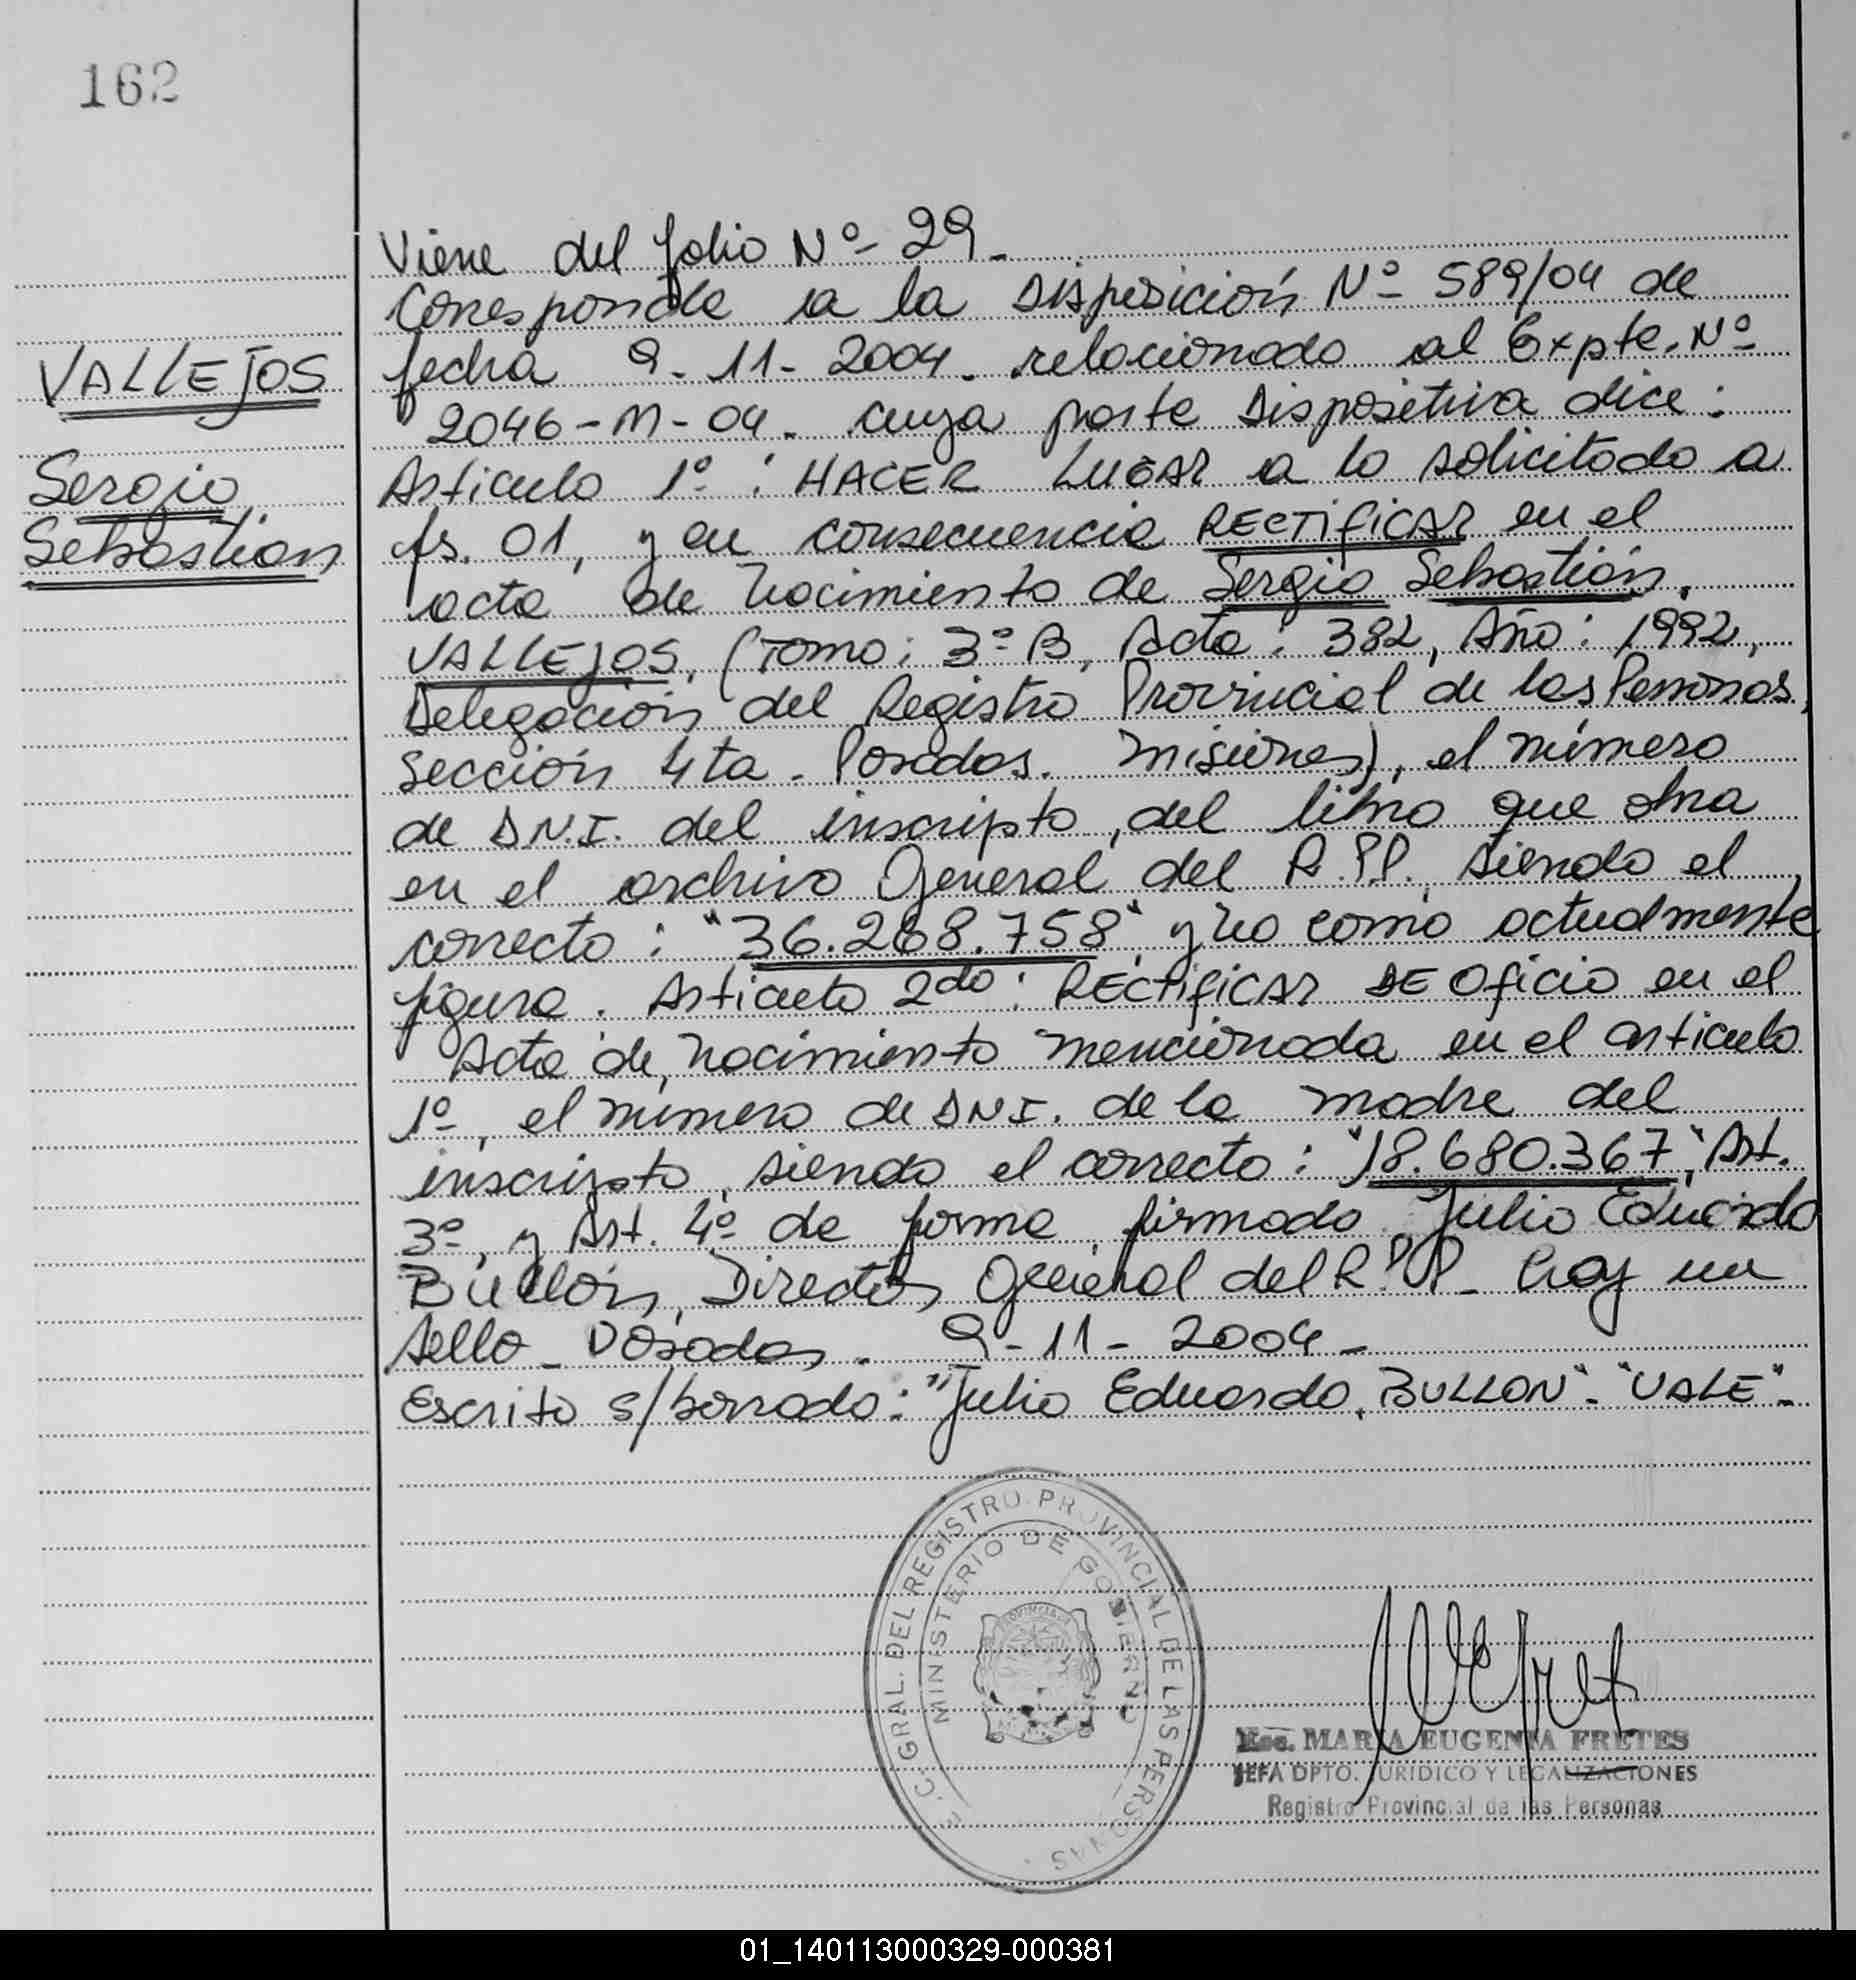 162
VALLEJOS
Sergio
Sebastian
Viene del folio Nº 29.
Corresponde a la Disposición Nº 589/04 de
fecha 9-11-2004. relacionado al Expte. Nº
2046-M-04. cuya parte Dispositiva dice:
Articulo 1º: HACER LUGAR a lo solicitado a
fs. 01, y en consecuencia RECTIFICAR en el
acta de nacimiento de Sergio Sebastián
VALLEJOS, (Tomo: 3º B, Acta: 382, Año: 1992,
Delegación del Registro Provincial de las Personas,
Sección 4ta. Posadas. Misiones), el número
de D.N.I. del inscripto, del libro que obra
en el archivo General del R.P.P., siendo el
correcto: "36.268.758" y no como actualmente
figura. Articulo 2do: RECTIFICAR DE Oficio en el
Acta de nacimiento mencionada en el articulo
1º, el número de DNI. de la madre del
inscripto, siendo el correcto: "18.680.367", Art.
3º, y Art. 4º de forma, firmado Julio Eduardo
Bullón, Director General del R.P.P. Hay un
sello - Posadas. 9-11-2004-
Escrito s/borrado: "Julio Eduardo, BULLON"- "VALE"-
C. GRAL. DEL REGISTRO PROVINCIAL DE LAS PERSONAS
MINISTERIO DE GOBIERNO
Esc. MARIA EUGENIA FRETES
JEFA DPTO. JURIDICO Y LEGALIZACIONES
Registro Provincial de las Personas
01_140113000329-000381